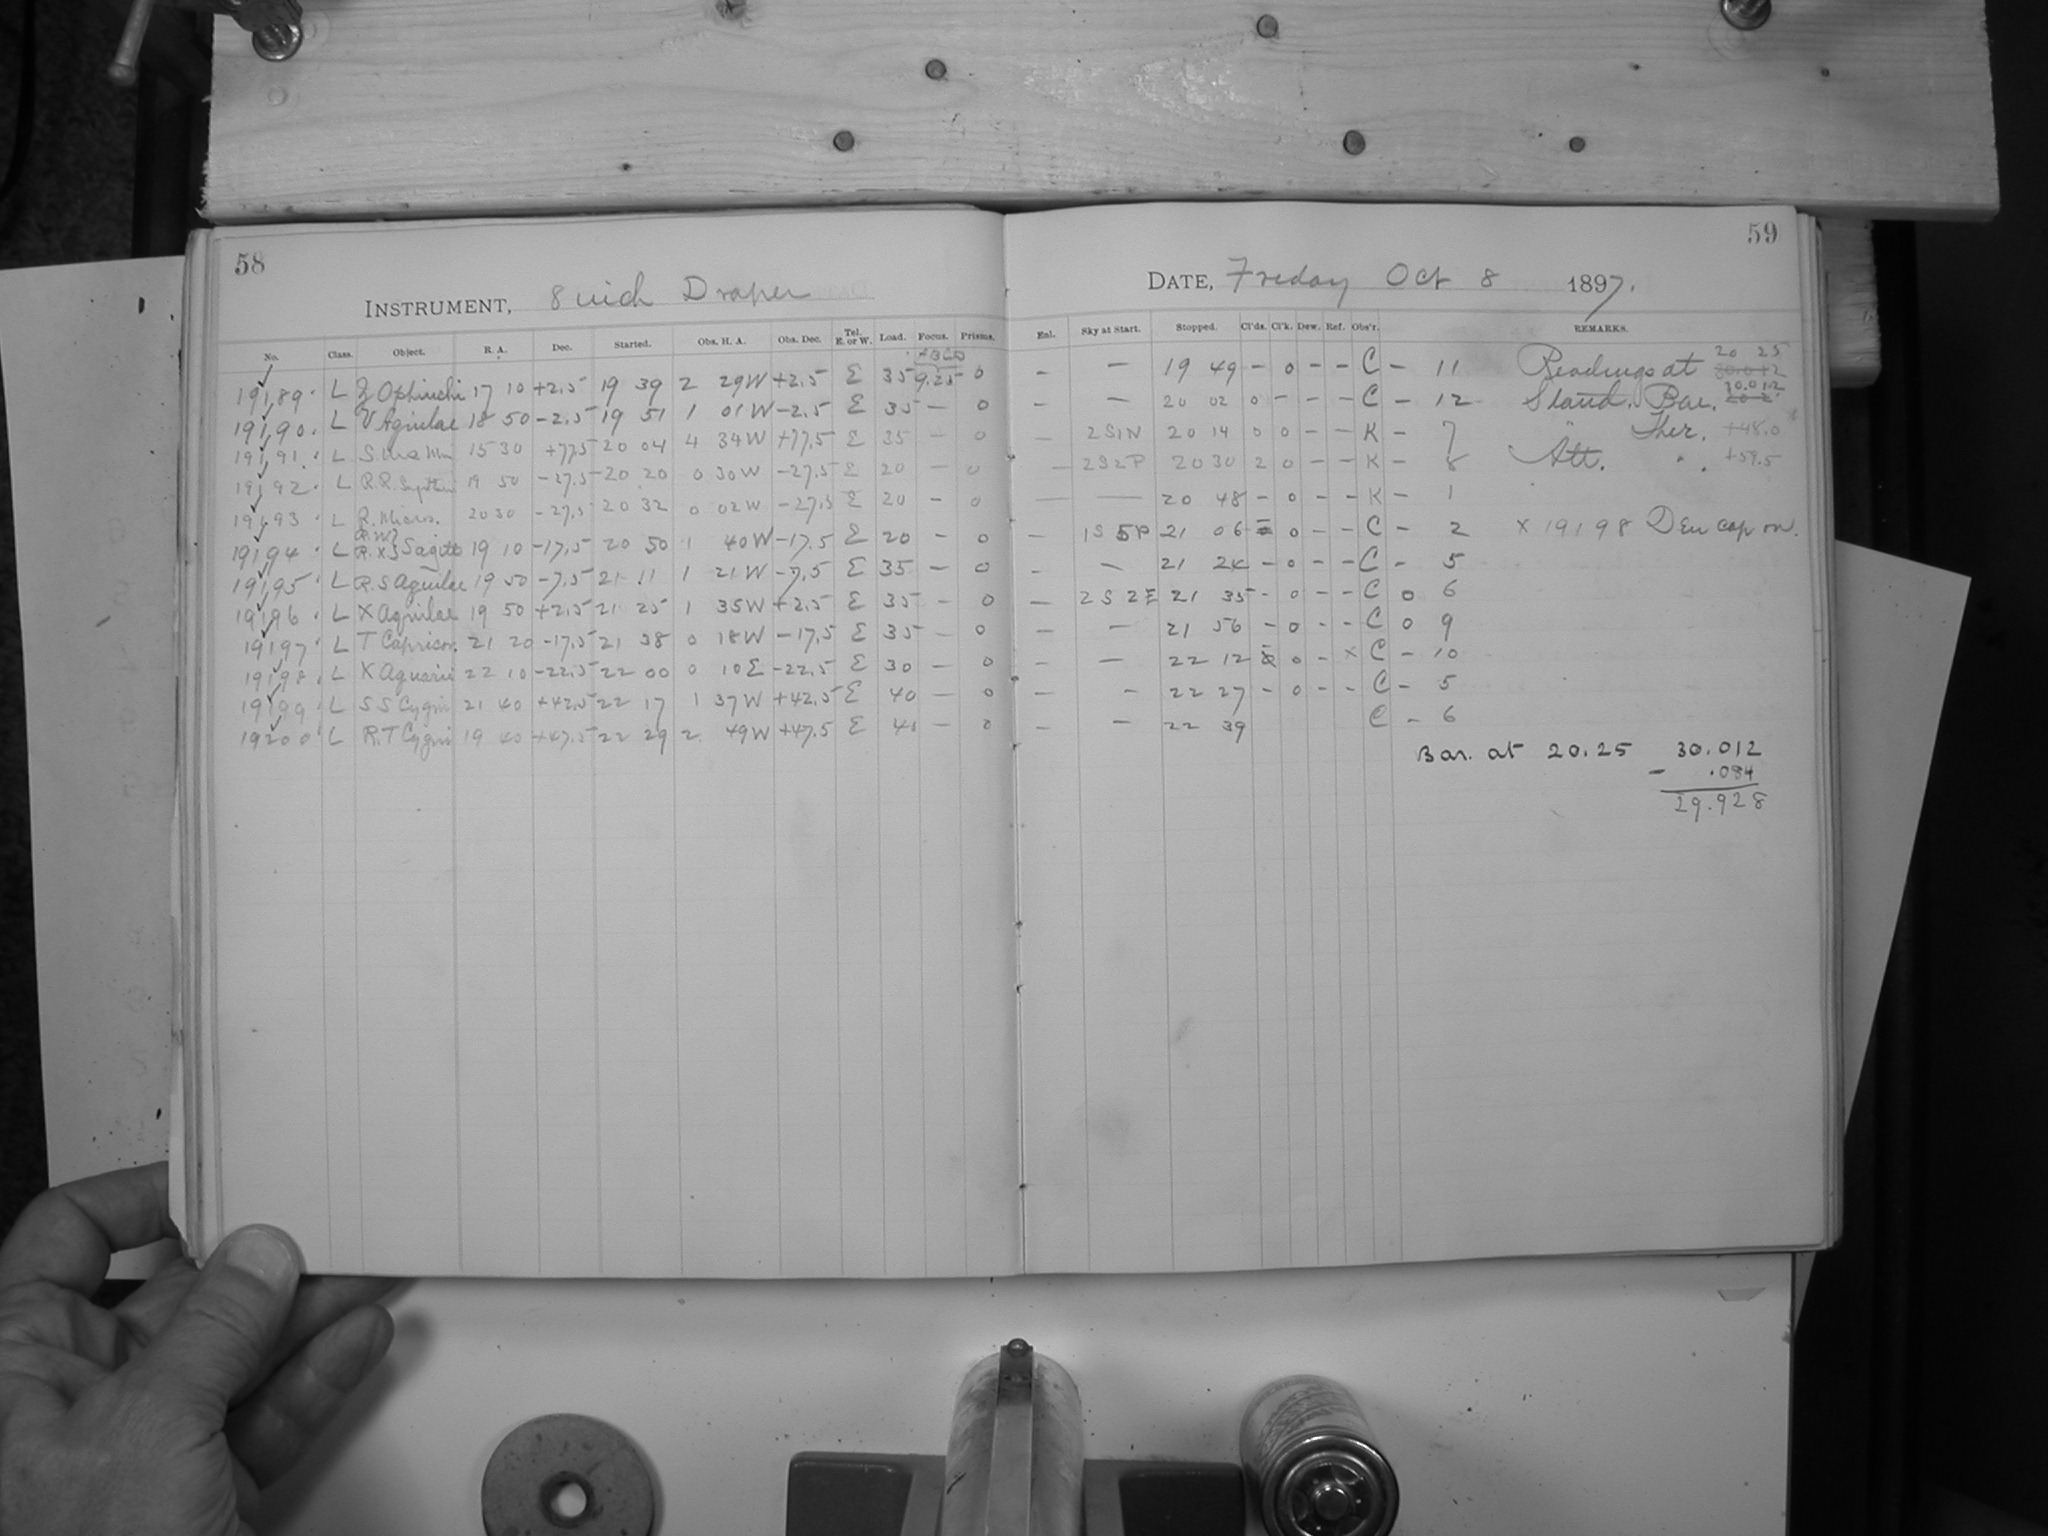 58
INSTRUMENT, 8 inch Draper
No. Class. Object. R. A. Dec. Started. Obs. H. A. Obs. Dec. Tel. E. or W. Load. Focus. Prisms.
ABCD
19189 L Z Ophiuchi 17 10 +2.5 19 39 2 29W +2.5 E 35 9.25 0
19190 L V Aquilae 18 50 -2.5 19 51 1 01W -2.5 E 35 - 0
19191 L S Ursa Min 15 30 +77.5 20 04 4 34W +77.5 E 35 - 0
19192 L R.R. 19 50 -27.5 20 20 0 30W -27.5 E 20 - 0
19193 L R. Micros. 20 30 -27.5 20 32 0 02W -27.5 E 20 - 0
19194 L R.W} R.X} Sagitt 19 10 -17.5 20 50 1 40W -17.5 E 20 - 0
19195 L R.S Aquilae 19 50 -7.5 21 11 1 21W -7.5 E 35 - 0
19196 L X Aquilae 19 50 +2.5 21 25 1 35W +2.5 E 35 - 0
19197 L T Capricor. 21 20 -17.5 21 38 0 18W -17.5 E 35 - 0
19198 L X Aquarii 22 10 -22.5 22 00 0 10E -22.5 E 30 - 0
19199 L SS Cygni 21 40 +42.5 22 17 1 37W +42.5 E 40 - 0
19200 L R.T Cygni 19 40 +47.5 22 29 2 49W +47.5 E 40 - 0
59
DATE, Friday Oct 8 1897.
Enl. Sky at Start. Stopped. Cl'ds. Cl'k. Dew. Ref. Obs'r. REMARKS.
- - 19 49 - 0 - - C - 11 Readings at 20 25
- - 20 02 0 - - - C - 12 Stand. Bar. 30.012
- 2S1N 20 14 0 0 - - K - 7 " Ther. +48.0
- 2S2P 20 30 2 0 - - K - 8 Att. " +59.5
- - 20 48 - 0 - - K - 1
- 1S5P 21 06 0 - - C - 2 x 19198 Dew cap on.
- - 21 24 - 0 - - C - 5
- 2S2E 21 35 - 0 - - C 0 6
- - 21 56 - 0 - - C 0 9
- - 22 12 0 - x C - 10
- - 22 27 - 0 - - C - 5
- - 22 39 C - 6
Bar. at 20.25 30.012
- .084
29.928